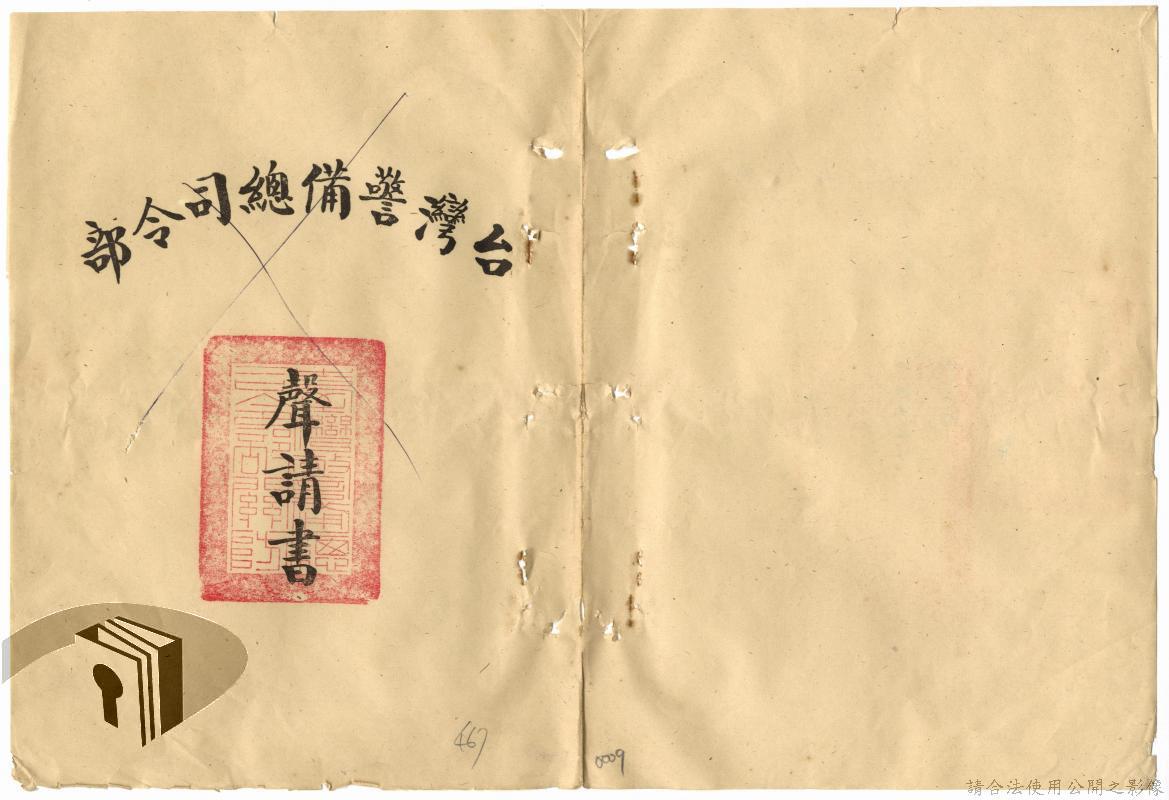 台灣警備總司令部
聲請書
467
0009
請合法使用公開之影像